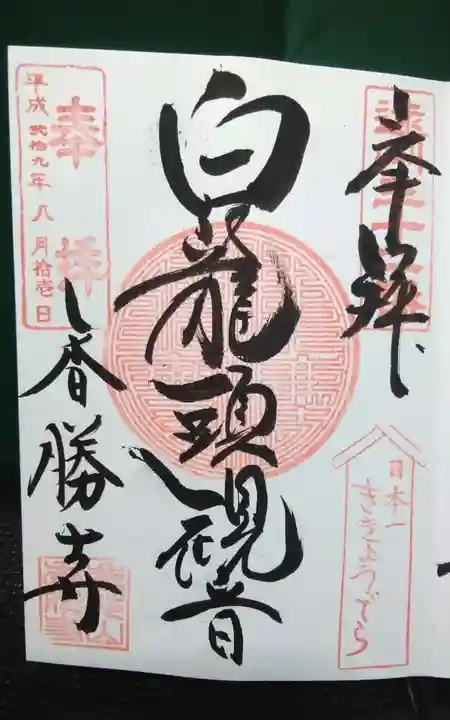 奉拝
日本一
ききょうでら
白龍頭観音
香勝寺
奉拝
平成貮拾九年八月拾壱日